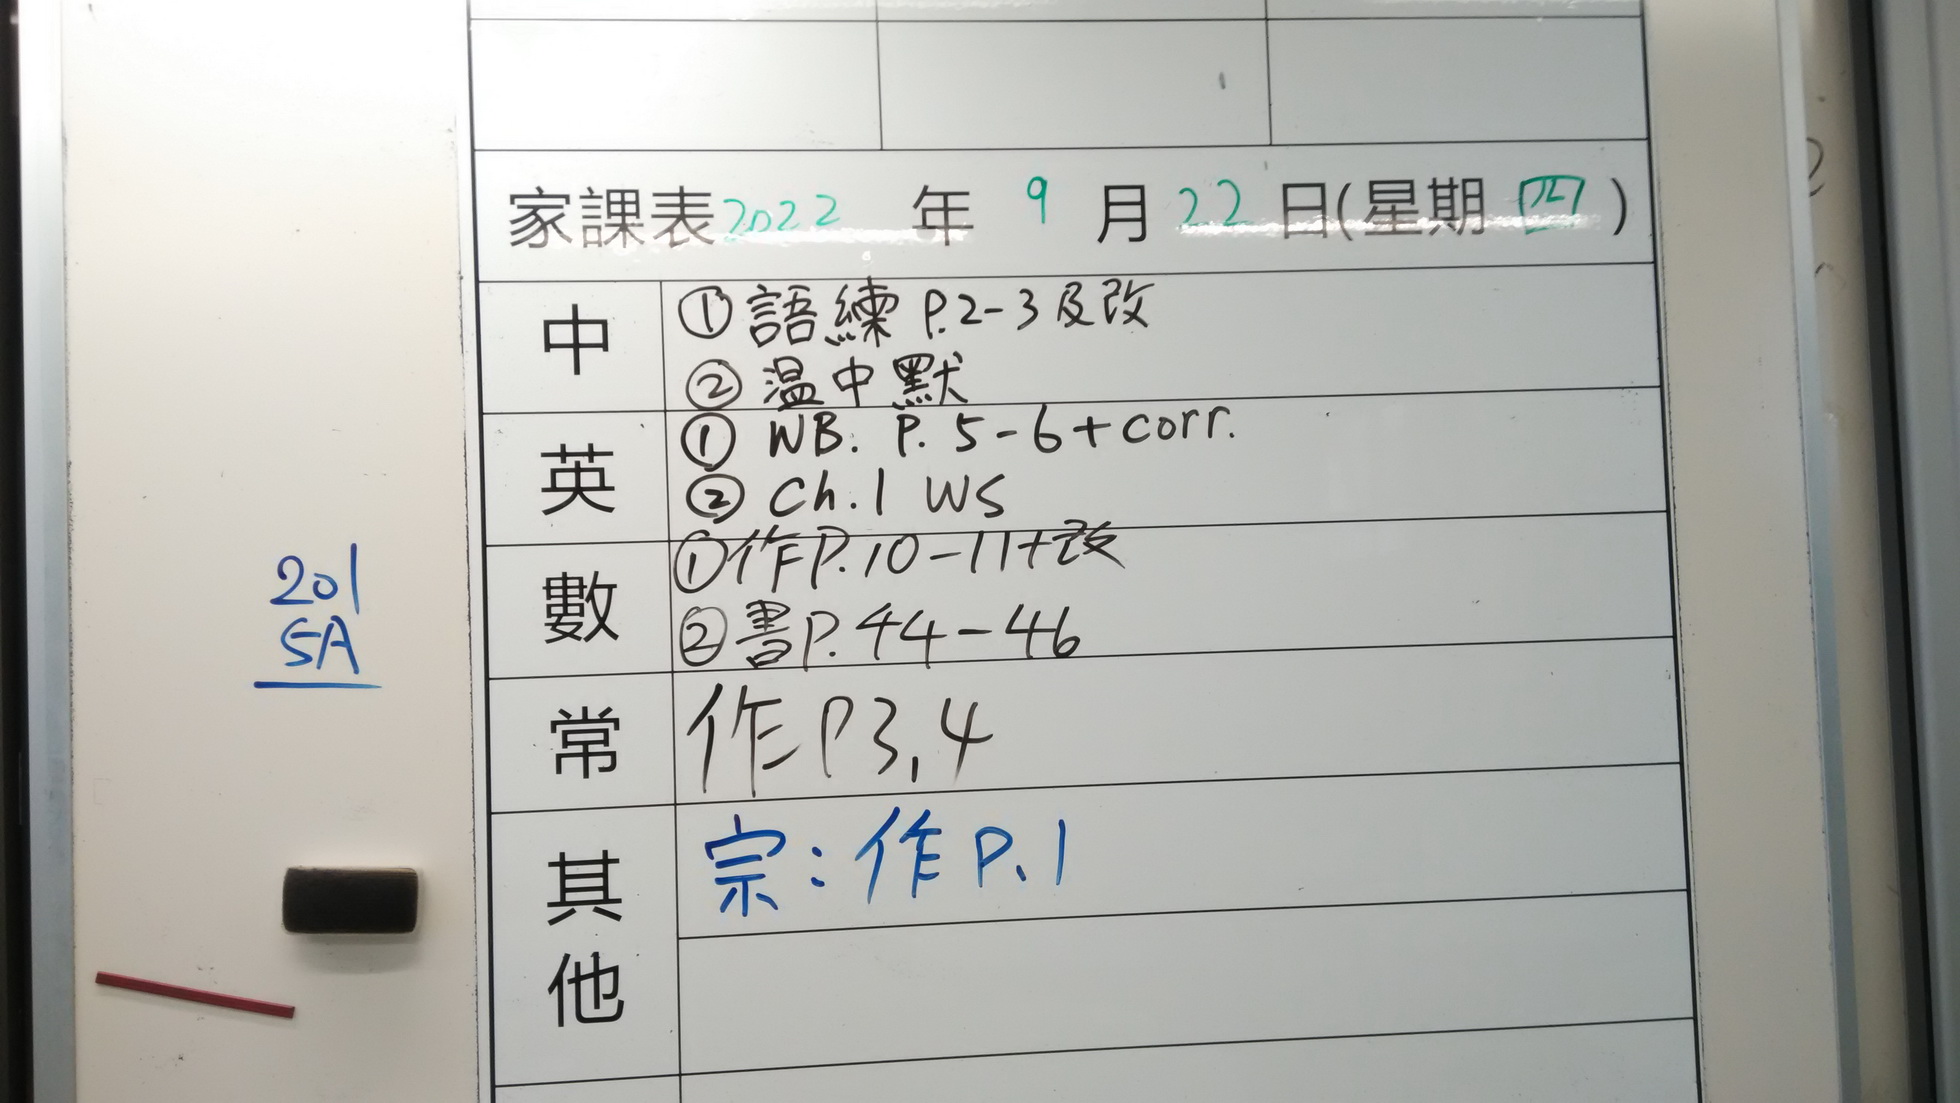 家課表2022年9月22日(星期四)
中
①語練 P.2-3及改
②温中默
英
① WB. P. 5-6+corr.
② Ch.1 WS
數
①作P.10-11+改
②書P.44-46
常
作P3,4
其他
宗:作P.1
201
5A